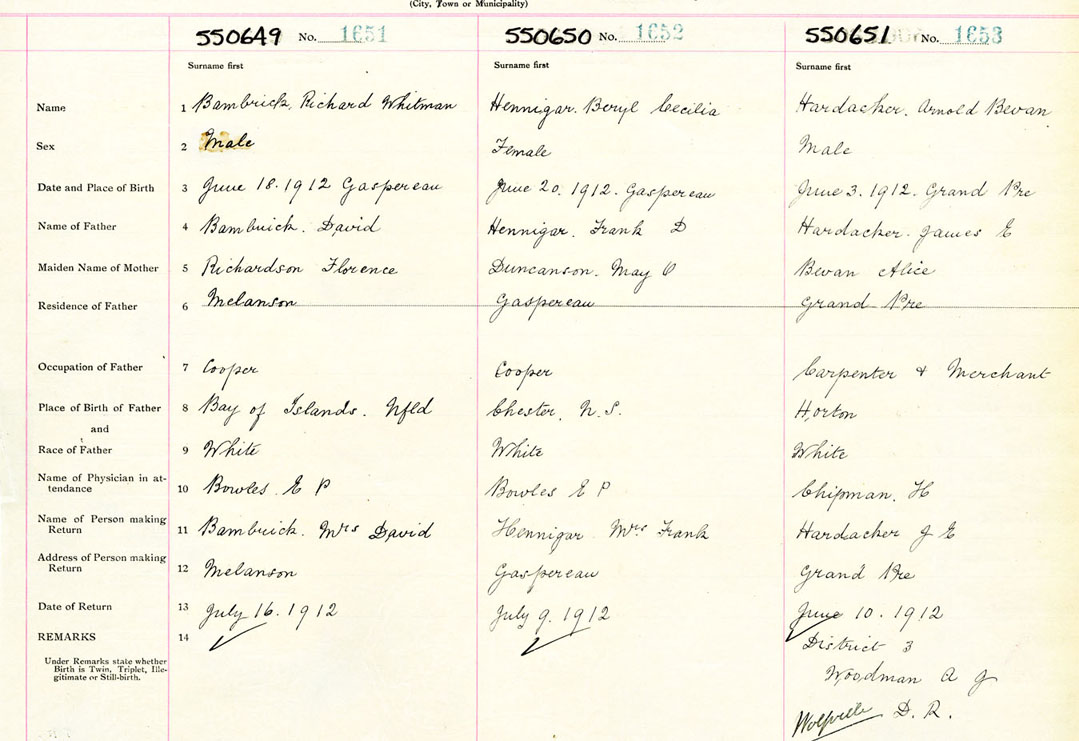 (City, Town or Municipality)
550649 No. 1651 550650 No. 1652 550651 No. 1653
Surname first Surname first Surname first
Name 1 Bambrick, Richard Whitman Hennigar. Beryl Cecilia Hardacker. Arnold Bevan
Sex 2 Male Female Male
Date and Place of Birth 3 June 18. 1912 Gaspereau June 20. 1912. Gaspereau June 3. 1912. Grand Pre
Name of Father 4 Bambrick. David Hennigar. Frank D Hardacker. James E
Maiden Name of Mother 5 Richardson Florence Duncanson. May O Bevan Alice
Residence of Father 6 Melanson Gaspereau Grand Pre
Occupation of Father 7 Cooper Cooper Carpenter & Merchant
Place of Birth of Father 8 Bay of Islands. Nfld Chester, N.S. Horton
and
Race of Father 9 White White White
Name of Physician in at-
tendance 10 Bowles. E P Bowles E P Chipman. H
Name of Person making
Return 11 Bambrick. Mrs David Hennigar. Mrs Frank Hardacker J E
Address of Person making
Return 12 Melanson Gaspereau Grand Pre
Date of Return 13 July 16. 1912 July 9. 1912 June 10. 1912
REMARKS 14 District 3
Under Remarks state whether
Birth is Twin, Triplet, Ille-
gitimate or Still-birth.
Woodman A J
Wolfville D. R.